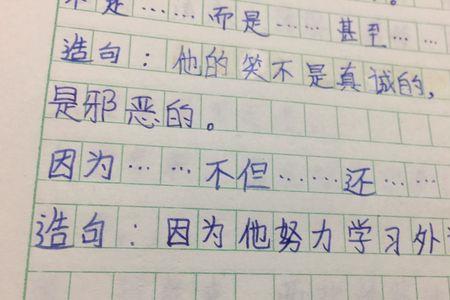 不是……而是……甚至……
造句：他的笑不是真诚的，
是邪恶的。
因为……不但……还……
造句：因为他努力学习外